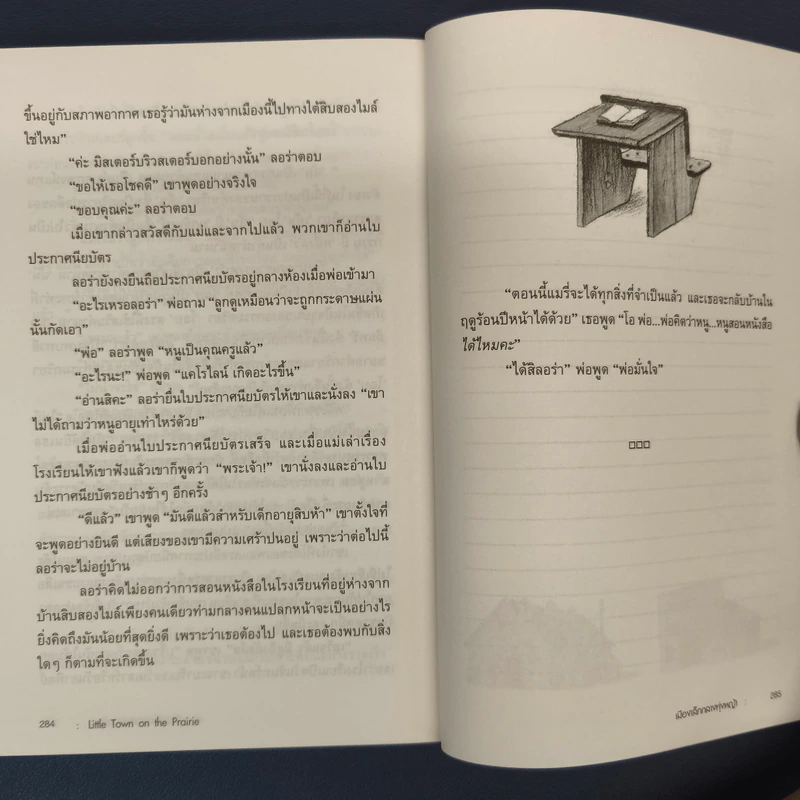 ขึ้นอยู่กับสภาพอากาศ เธอรู้ว่ามันห่างจากเมืองนี้ไปทางใต้สิบสองไมล์
ใช่ไหม”
“ค่ะ มิสเตอร์บริวสเตอร์บอกอย่างนั้น” ลอร่าตอบ
“ขอให้เธอโชคดี” เขาพูดอย่างจริงใจ
“ขอบคุณค่ะ” ลอร่าตอบ
เมื่อเขากล่าวสวัสดีกับแม่และจากไปแล้ว พวกเขาก็อ่านใบ
ประกาศนียบัตร
ลอร่ายังคงยืนถือประกาศนียบัตรอยู่กลางห้องเมื่อพ่อเข้ามา
“อะไรเหรอลอร่า” พ่อถาม “ลูกดูเหมือนว่าจะถูกกระดาษแผ่น
นั้นกัดเอา”
“พ่อ” ลอร่าพูด “หนูเป็นคุณครูแล้ว”
“อะไรนะ!” พ่อพูด “แคโรไลน์ เกิดอะไรขึ้น”
“อ่านสิคะ” ลอร่ายื่นใบประกาศนียบัตรให้เขาและนั่งลง “เขา
ไม่ได้ถามว่าหนูอายุเท่าไหร่ด้วย”
เมื่อพ่ออ่านใบประกาศนียบัตรเสร็จ และเมื่อแม่เล่าเรื่อง
โรงเรียนให้เขาฟังแล้วเขาก็พูดว่า “พระเจ้า!” เขานั่งลงและอ่านใบ
ประกาศนียบัตรอย่างช้าๆ อีกครั้ง
“ดีแล้ว” เขาพูด “มันดีแล้วสำหรับเด็กอายุสิบห้า” เขาตั้งใจที่
จะพูดอย่างยินดี แต่เสียงของเขามีความเศร้าปนอยู่ เพราะว่าต่อไปนี้
ลอร่าจะไม่อยู่บ้าน
ลอร่าคิดไม่ออกว่าการสอนหนังสือในโรงเรียนที่อยู่ห่างจาก
บ้านสิบสองไมล์เพียงคนเดียวท่ามกลางคนแปลกหน้าจะเป็นอย่างไร
ยิ่งคิดถึงมันน้อยที่สุดยิ่งดี เพราะว่าเธอต้องไป และเธอต้องพบกับสิ่ง
ใดๆ ก็ตามที่จะเกิดขึ้น
284 : Little Town on the Prairie
“ตอนนี้แมรี่จะได้ทุกสิ่งที่จำเป็นแล้ว และเธอจะกลับบ้านใน
ฤดูร้อนปีหน้าได้ด้วย” เธอพูด “โอ พ่อ...พ่อคิดว่าหนู...หนูสอนหนังสือ
ได้ไหมคะ”
“ได้สิลอร่า” พ่อพูด “พ่อมั่นใจ”
□□□
เมืองเล็กกลางทุ่งหญ้า : 285